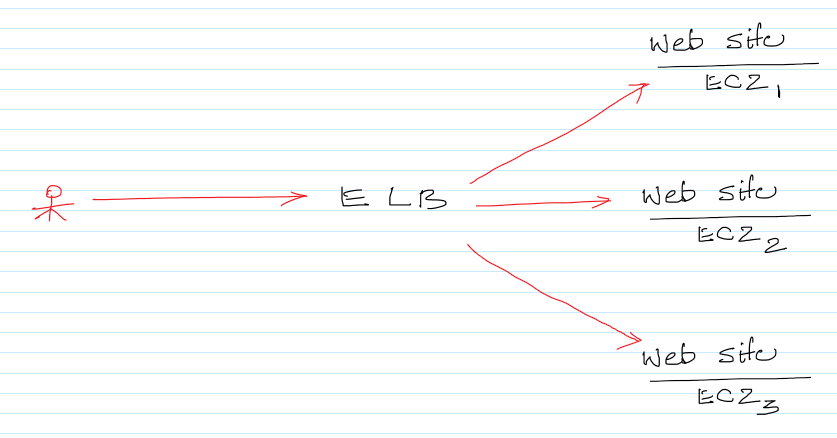 Web site
EC2 1
ELB
Web site
EC2 2
Web site
EC2 3